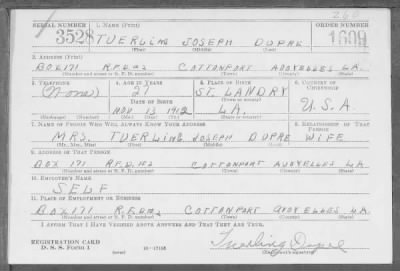 260
SERIAL NUMBER 1. NAME (Print) ORDER NUMBER
3528 TUERLING JOSEPH DUPRE 1609
(First) (Middle) (Last)
2. ADDRESS (Print)
BOX 171 R.F.D. #2 COTTONPORT AVOYELLES LA.
(Number and street or R. F. D. number) (Town) (County) (State)
3. TELEPHONE 4. AGE IN YEARS 5. PLACE OF BIRTH 6. COUNTRY OF CITIZENSHIP
(None) 27 ST. LANDRY
DATE OF BIRTH (Town or county)
NOV 13 1912 LA. U.S.A
(Exchange) (Number) (Mo.) (Day) (Yr.) (State or country)
7. NAME OF PERSON WHO WILL ALWAYS KNOW YOUR ADDRESS 8. RELATIONSHIP OF THAT PERSON
MRS. TUERLING JOSEPH DUPRE WIFE
(Mr., Mrs., Miss) (First) (Middle) (Last)
9. ADDRESS OF THAT PERSON
BOX 171 R.F.D. #2 COTTONPORT AVOYELLES LA
(Number and street or R. F. D. number) (Town) (County) (State)
10. EMPLOYER'S NAME
SELF
11. PLACE OF EMPLOYMENT OR BUSINESS
BOX 171 R.F.D. #2 COTTONPORT AVOYELLES LA
(Number and street or R. F. D. number) (Town) (County) (State)
I AFFIRM THAT I HAVE VERIFIED ABOVE ANSWERS AND THAT THEY ARE TRUE.
REGISTRATION CARD
D. S. S. Form 1 (over) 16—17105 Tuerling Dupre